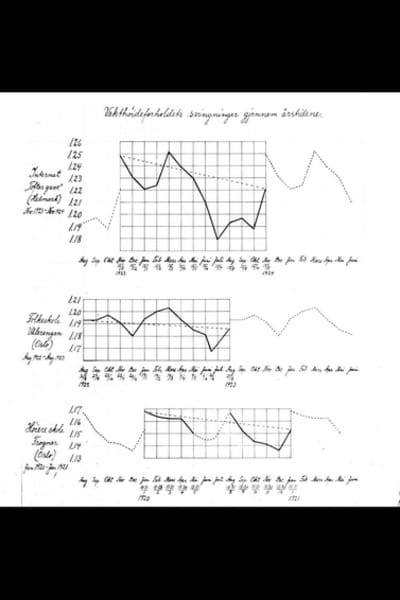 Vekthöideforholdets svingninger gjennem årstidene.
Internat
"Toftes gave"
(Hedmark)
Nov. 1923 - Nov. 1924
1.26
1.25
1.24
1.23
1.22
1.21
1.20
1.19
1.18
Aug Sep. Okt Nov Dec Jan Feb Mars Apr. Mai Juni Juli Aug Sep. Okt Nov Dec. Jan. Feb. Mars Apr. Mai Juni
1923 1924
Folkeskole
Vålerengen
(Oslo)
Aug 1922 - Aug 1923
1.21
1.20
1.19
1.18
1.17
Aug Sep. Okt Nov Dec Jan Feb Mars Apr. Mai Juni Juli Aug Sep. Okt Nov Dec. Jan. Feb. Mars Apr. Mai Juni
1922 1923
Höiere skole
Frogner
(Oslo)
Jan 1920 - Jan. 1921
1.17
1.16
1.15
1.14
1.13
Aug Sep. Okt Nov Dec Jan Feb Mars Apr. Mai Juni Juli Aug Sep. Okt Nov Dec. Jan. Feb. Mars Apr. Mai Juni
1920 1921